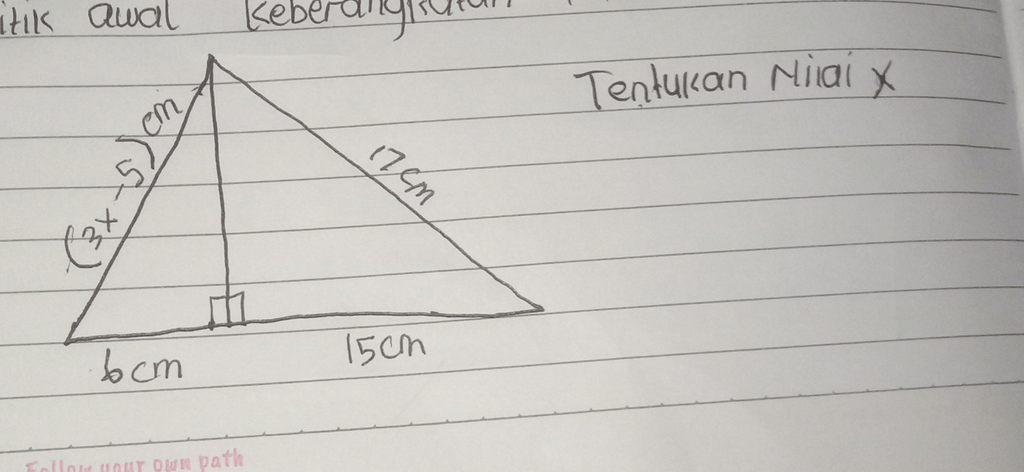 itik awal keberangkatan
Tentukan Nilai x
(3x - 5) cm
17 cm
6 cm
15 cm
Follow your own path